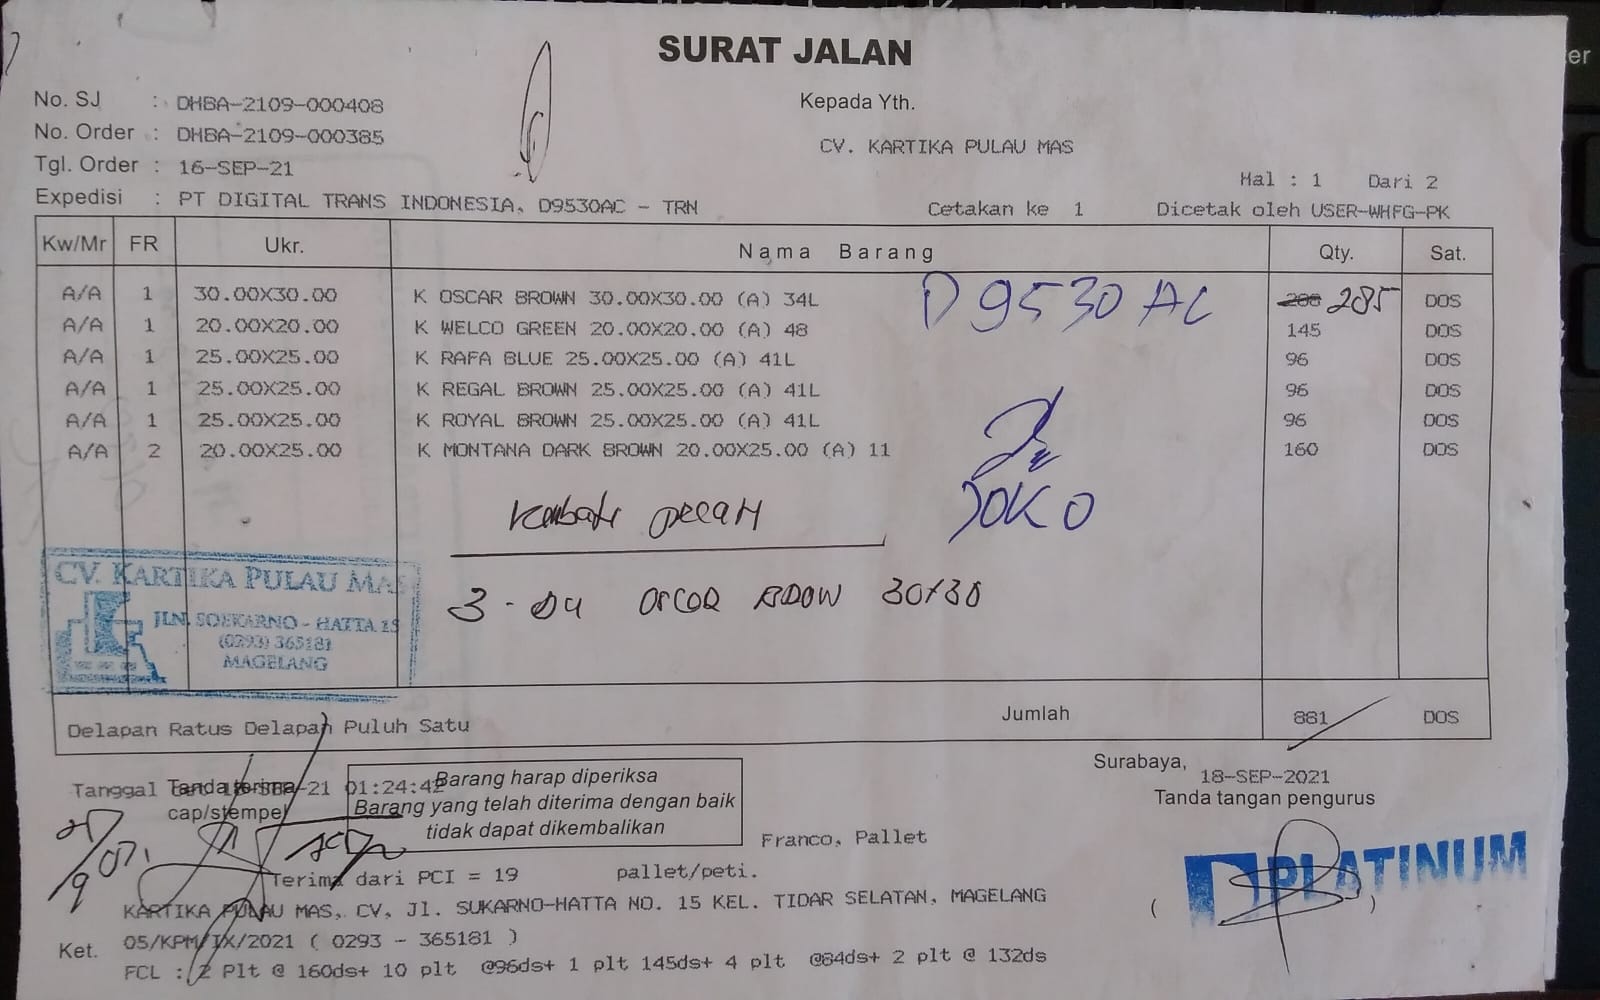 SURAT JALAN
No. SJ : DHBA-2109-000408
No. Order : DHBA-2109-000385
Tgl. Order : 16-SEP-21
Expedisi : PT DIGITAL TRANS INDONESIA, D9530AC - TRN
Kepada Yth.
CV. KARTIKA PULAU MAS
Hal : 1 Dari 2
Cetakan ke 1 Dicetak oleh USER-WHFG-PK
Kw/Mr FR Ukr. Nama Barang Qty. Sat.
A/A 1 30.00X30.00 K OSCAR BROWN 30.00X30.00 (A) 34L 285 DOS
A/A 1 20.00X20.00 K WELCO GREEN 20.00X20.00 (A) 48 145 DOS
A/A 1 25.00X25.00 K RAFA BLUE 25.00X25.00 (A) 41L 96 DOS
A/A 1 25.00X25.00 K REGAL BROWN 25.00X25.00 (A) 41L 96 DOS
A/A 1 25.00X25.00 K ROYAL BROWN 25.00X25.00 (A) 41L 96 DOS
A/A 2 20.00X25.00 K MONTANA DARK BROWN 20.00X25.00 (A) 11 160 DOS
D 9530 AC
JOKO
pecah
30x30
CV. KARTIKA PULAU MAS
JLN. SOEKARNO - HATTA 15
(0293) 365181
MAGELANG
Jumlah 881 DOS
Delapan Ratus Delapan Puluh Satu
Tanggal 21 01:24:42
Tanda terima
cap/stempel
Barang harap diperiksa
Barang yang telah diterima dengan baik
tidak dapat dikembalikan
Surabaya, 18-SEP-2021
Tanda tangan pengurus
Franco, Pallet
PLATINUM
Terima dari PCI = 19 pallet/peti.
KARTIKA PULAU MAS, CV, Jl. SUKARNO-HATTA NO. 15 KEL. TIDAR SELATAN, MAGELANG
Ket. 05/KPM/IX/2021 ( 0293 - 365181 )
FCL : 2 Plt @ 160ds+ 10 plt @96ds+ 1 plt 145ds+ 4 plt @84ds+ 2 plt @ 132ds